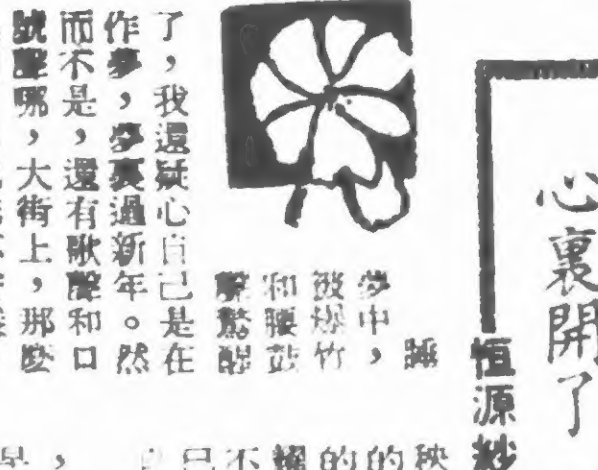 心裏開了
恒源紗
睡
夢中，
被爆竹
和腰鼓
聲驚醒
了，我還疑心自己是在
作夢，夢裏過新年。然
而不是，還有歌聲和口
號聲哪，大街上，那麽
秧
的
的
耀
不
己
，
早